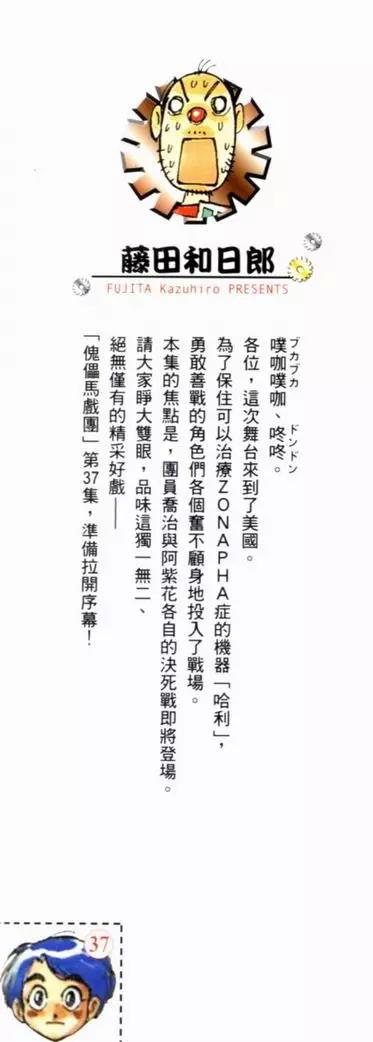 藤田和日郎
FUJITA Kazuhiro PRESENTS
ブカブカ ドンドン
噗咖噗咖、咚咚。
各位，這次舞台來到了美國。
為了保住可以治療ZONAPHA症的機器「哈利」，
勇敢善戰的角色們各個奮不顧身地投入了戰場。
本集的焦點是，團員喬治與阿紫花各自的決死戰即將登場。
請大家睜大雙眼，品味這獨一無二、
絕無僅有的精采好戲——
「傀儡馬戲團」第37集，準備拉開序幕！
37